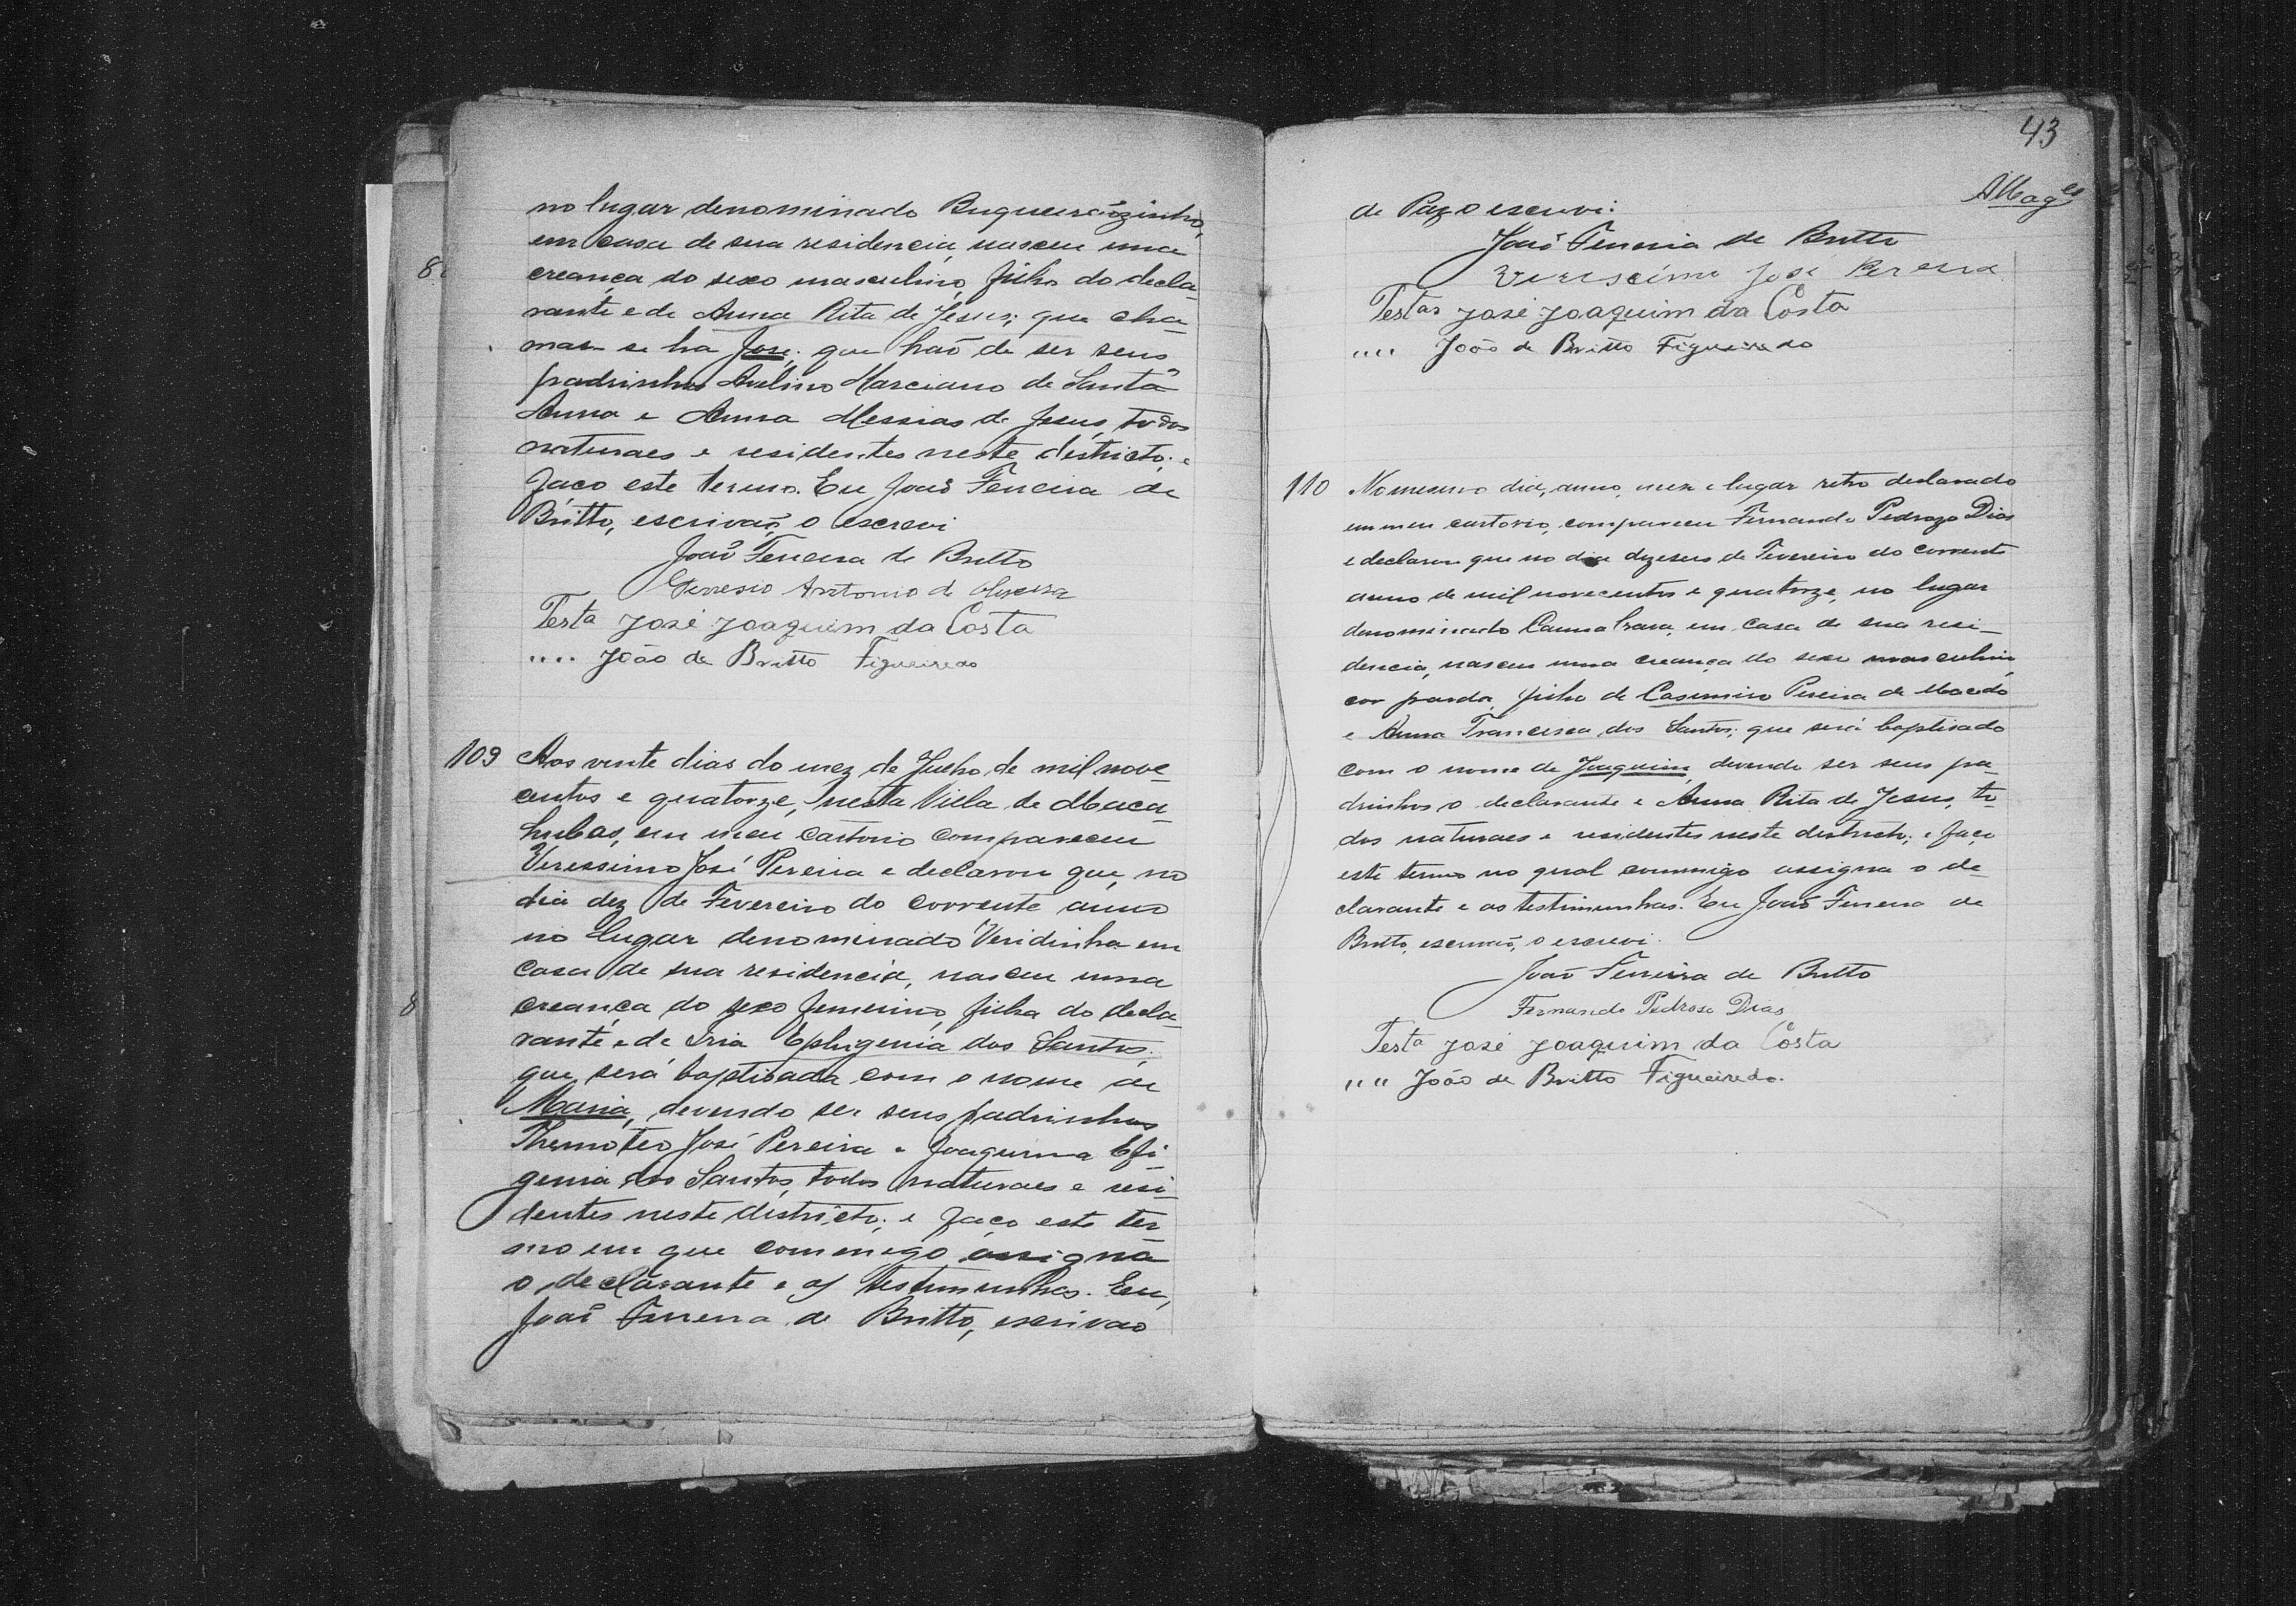 no lugar denominado Buqueirãozinho,
em casa de sua residencia, nasceu uma
creança do sexo masculino, filho do decla-
rante e de Anna Rita de Jesus; que cha-
mar-se ha José; que haõ de ser seus
padrinhos Avelino Marciano de Santa
Anna e Anna Messias de Jesus, todos
naturaes e residentes neste districto; e
faco este termo. Eu Joaõ Ferreira de
Britto, escrivaõ, o escrevi
Joaõ Ferreira de Britto
Antonio de Oliveira
Testa José Joaquim da Costa
"" João de Britto Figueiredo
109 Aos vinte dias do mez de Julho de mil nove
centos e quatorze, nesta Villa de Maca-
hubas, em meu cartorio compareceu
Verissimo José Pereira e declarou que, no
dia dez de Fevereiro do corrente anno
no lugar denominado Veridinha em
casa de sua residencia, nasceu uma
creança do sexo femenino, filha do decla-
rante e de Iria Ephigenia dos Santos;
que será baptisada com o nome de
Maria, devendo ser seus padrinhos
Themoteo José Pereira e Joaquina Efi-
genia dos Santos, todos naturaes e resi-
dentes neste districto; e faço este ter
mo em que commigo assigna
o declarante e as testimunhas. Eu,
Joaõ Ferreira de Britto, escrivao
8
8
43
de Paz o escrevi.
Joaõ Ferreira de Britto
Veriscimo José Pereira
Testas José Joaquim da Costa
"" João de Britto Figueiredo
110 No mesmo dia, anno, mez e lugar retro declarado
em meu cartorio, compareceu Fernando Pedrozo Dias
e declarou que no dia dezeseis de Fevereiro do corrente
anno de mil novecentos e quatorze, no lugar
denominado Canna brava, em casa de sua resi-
dencia, nasceu uma creança do sexo masculino,
cor parda, filho de Casimiro Pereira de Macedo
e Anna Francisca dos Santos; que será baptisado
com o nome de Joaquim, devendo ser seus pa-
drinhos o declarante e Anna Rita de Jesus, to
dos naturaes e residentes neste districto; e faço
este termo no qual commigo assigna o de-
clarante e as testimunhas. Eu Joaõ Ferreira de
Britto, escrivaõ, o escrevi.
Joaõ Ferreira de Britto
Fernando Pedroso Dias
Testa José Joaquim da Costa
"" João de Britto Figueiredo.